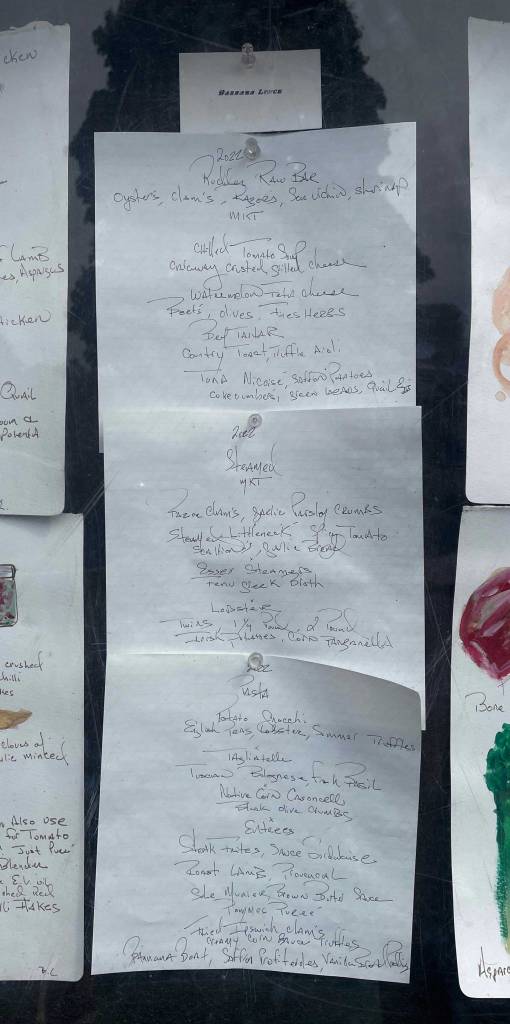 cken
LAMB
es, Asparagus
icken
Quail
oom &
Polenta
crushed
hilli
kes
cloves of
lic minced
Also use
for Tomato
Just Puree
Blender
E.V. oil
Red
li Flakes
B.C
BARBARA LYNCH
2022
Rockley Raw Bar
Oysters, Clam's, Razors, Sea Urchin, shrimp
MKT
Chilled Tomato Soup
crusted grilled cheese
Watermelon Feta cheese
Beets, olives, fines Herbs
Beef TARTAR
Country Toast, Truffle Aioli
Tuna Nicoise, Saffron Potatoes
cokecumbers, green beans, Quail Egg
2022
Steamed
MKT
Razor Clam's, garlic Parsley Crumbs
Steamed Littleneck Spicy Tomato
Scallion's, Garlic Bread
Essex Steamers
Fenu greek Broth
Lobster
Twins, 1 1/4 Pound, 2 Pound
Corn Panzanella
2022
Pasta
Potato Gnocchi
English Peas, Lobster, Summer Truffles
Tagliatelle
Tuscan Bolognese, Fresh Basil
Native Corn Casoncelli
Black olive crumbs
Entrees
Steak Frites, Sauce Bordelaise
Roast Lamb, Provencal
Sole Munier, Brown Butter Sauce
Pommes Puree
Fried Ipswich clam's
creamy corn Truffles
Bannana Boat, Saffron Profiteroles,
Bone
Aspara